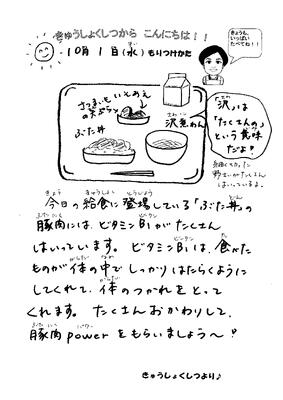 きゅうしょくしつから こんにちは!!
きょうも、
いっぱい
たべてね!!
10月 1日(水) もりつけかた
いとあえ
さつまいも
の天ぷら
ぶた丼
沢煮わん
「沢」は
「たくさんの」
という意味
だよ!
細く切った
野さいがたくさん
はいっているよ。
今日の給食に登場している「ぶた丼」の
豚肉には、ビタミンB₁がたくさん
はいっています。ビタミンB₁は、食べた
ものが体の中でしっかりはたらくように
してくれて、体のつかれをとって
くれます。たくさんおかわりして、
豚肉powerをもらいましょう〜!
きゅうしょくしつより♪